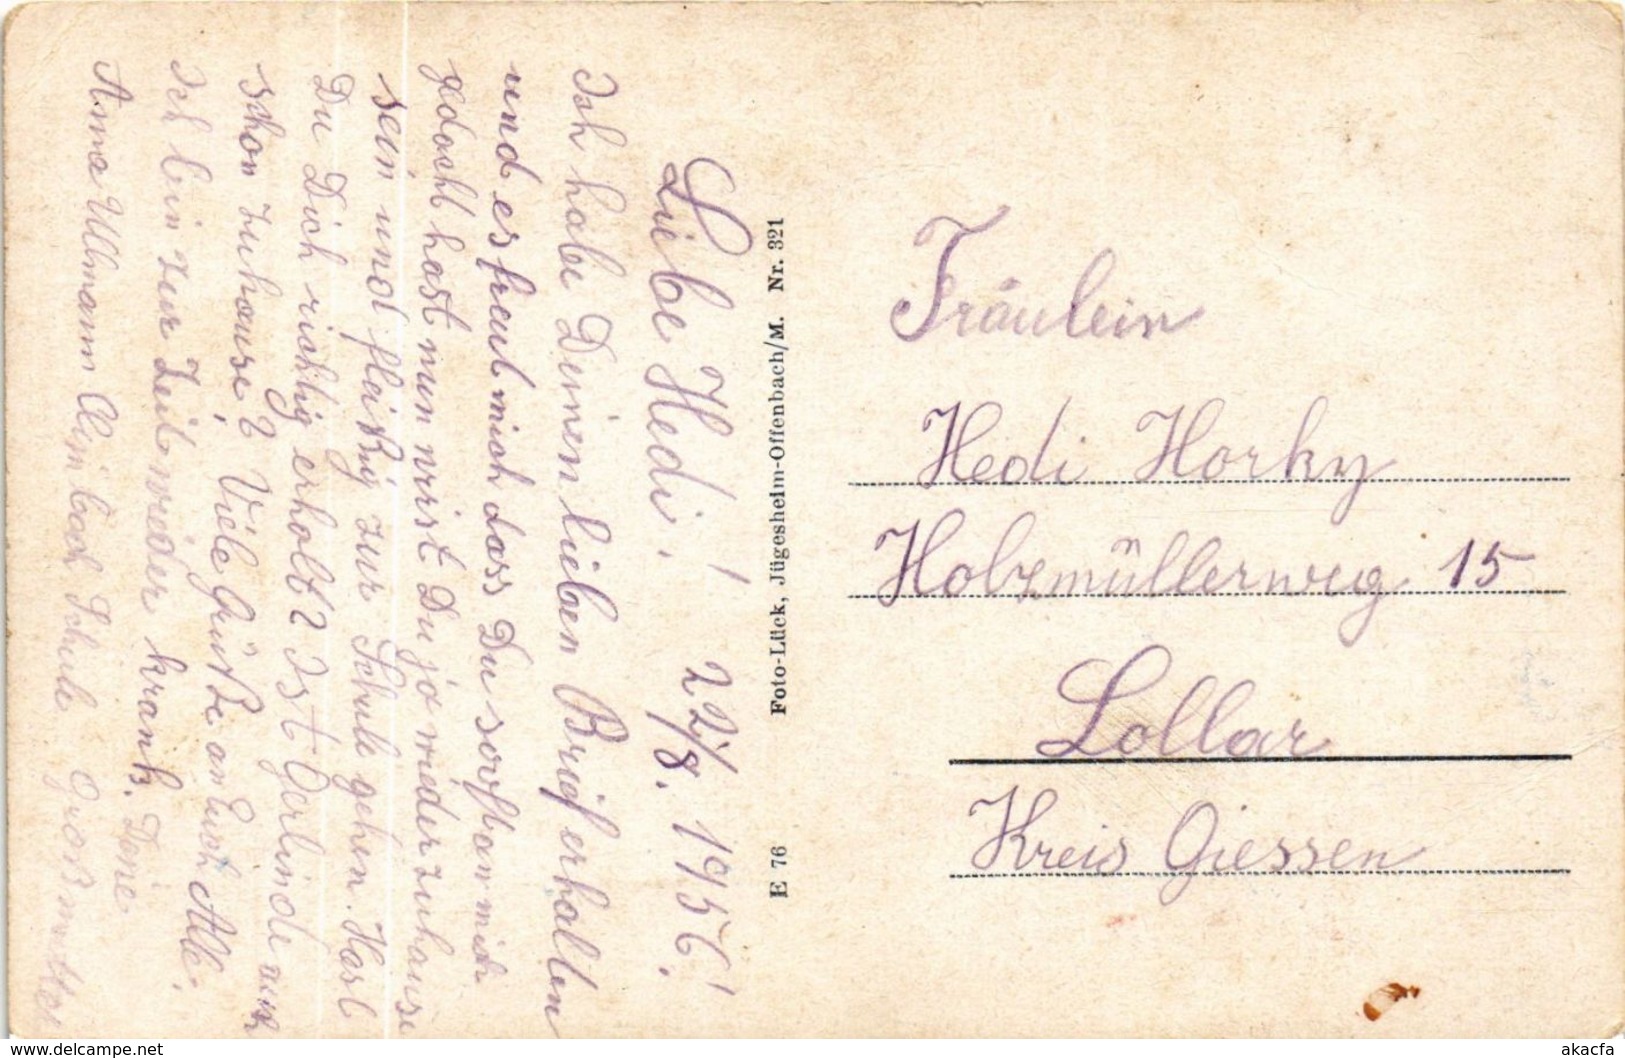 Liebe Hedi! 22/8. 1956!
Ich habe Deinen lieben Brief erhallen
und es freut mich dass Du so oft an mich
gedacht hast nun wirst Du ja wieder zuhause
sein und fleißig zur Schule gehen. Hast
Du Dich richtig erholt? Ist Gerlinde auch
schon zuhause? Viele Grüße an Euch Alle!
Ich bin zur Zeit wieder krank. Deine
Anna Ullmann Schule Großmutter
Foto-Lück, Jügesheim-Offenbach/M. Nr. 321
E 76
Fräulein
Hedi Horky
Holzmüllerweg 15
Lollar
Kreis Giessen
akacfa
www.delcampe.net